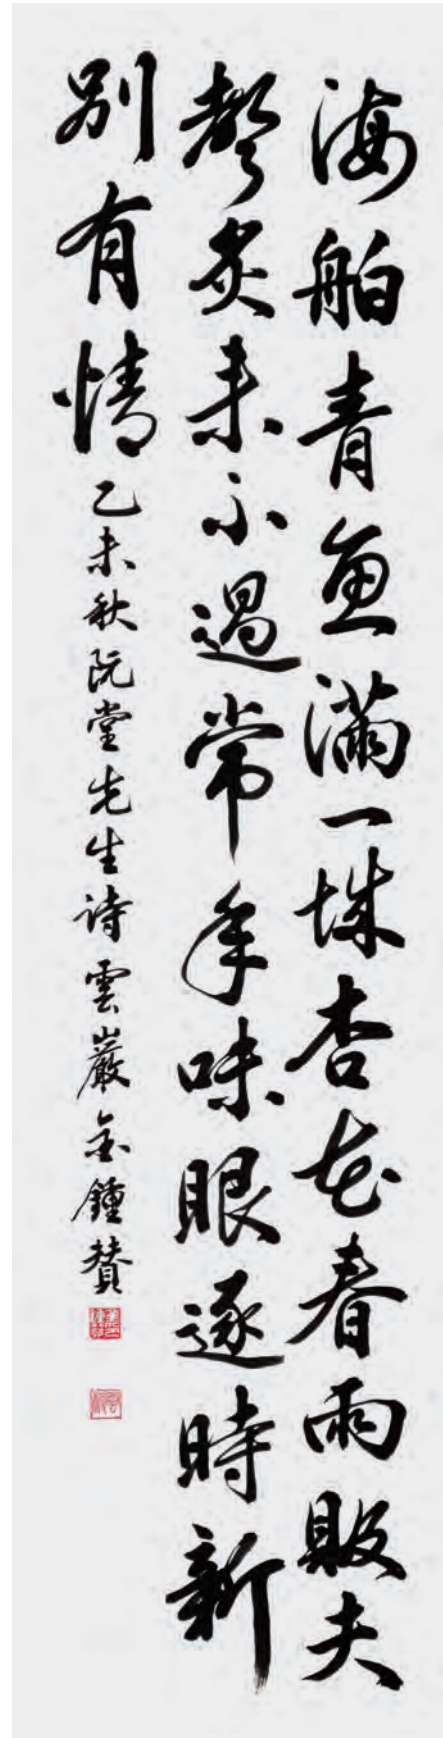 海舶青魚滿一城杏花春雨販夫
聲炙來不過常年味眼逐時新
別有情
乙未秋阮堂先生詩雲巖金鍾贊